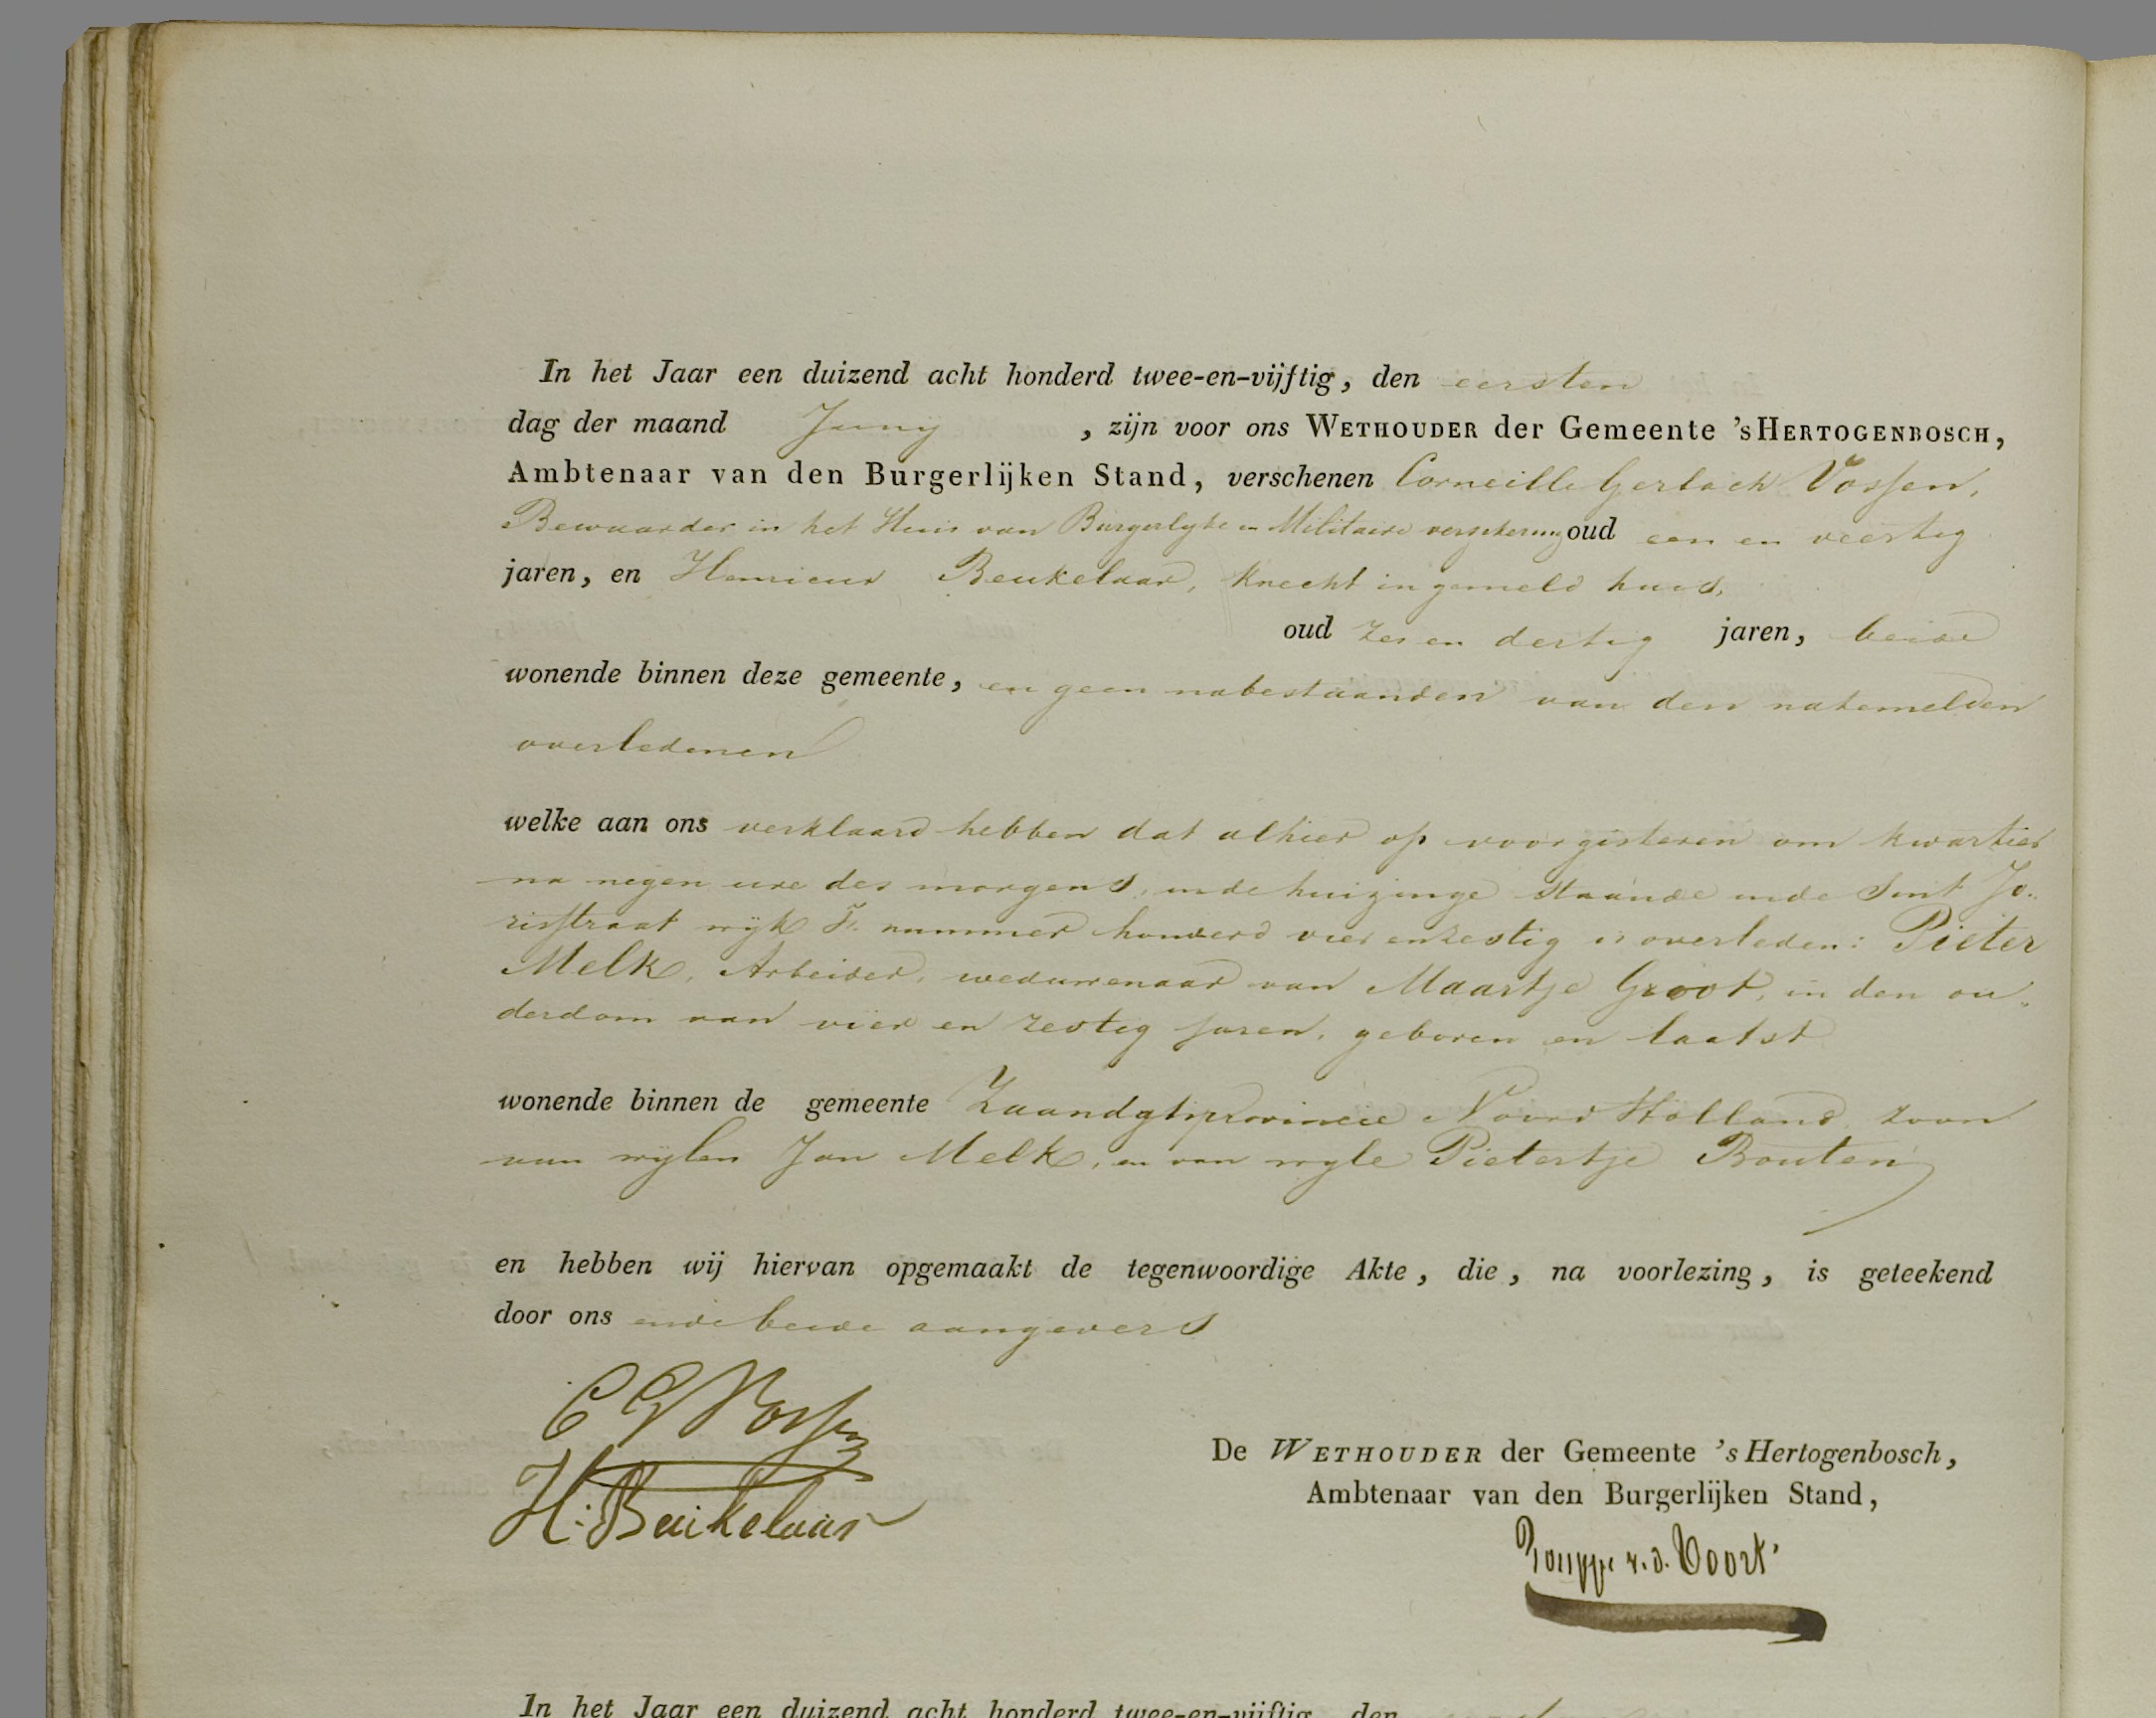 In het Jaar een duizend acht honderd twee-en-vijftig, den eersten
dag der maand Juny , zijn voor ons WETHOUDER der Gemeente 'sHERTOGENBOSCH,
Ambtenaar van den Burgerlijken Stand, verschenen Corneille Gerlach Vossen,
Bewaarder in het Huis van Burgerlyke en Militaire verzekering oud een en veertig
jaren, en Henricus Beukelaar, Knecht in gemeld huis,
oud zes en dertig jaren, beide
wonende binnen deze gemeente, en geen nabestaanden van den natemelden
overledenen
welke aan ons verklaard hebben dat alhier op voorgisteren om kwartier
na negen ure des morgens, in de huizinge staande in de Sint Jo-
risstraat wijk F. nummer honderd vier en zestig is overleden: Pieter
Melk, Arbeider, weduwenaar van Maartje Groot, in den ou-
derdom van vier en zestig jaren, geboren en laatst
wonende binnen de gemeente Zaandyk provincie Noord Holland, zoon
van wylen Jan Melk, en van wyle Pietertje Bouten
en hebben wij hiervan opgemaakt de tegenwoordige Akte, die, na voorlezing, is geteekend
door ons en de beide aangevers
C G Vossen
H: Beukelaar
De WETHOUDER der Gemeente 's Hertogenbosch,
Ambtenaar van den Burgerlijken Stand,
v. d. Voort
In het Jaar een duizend acht honderd twee-en-vijftig, den